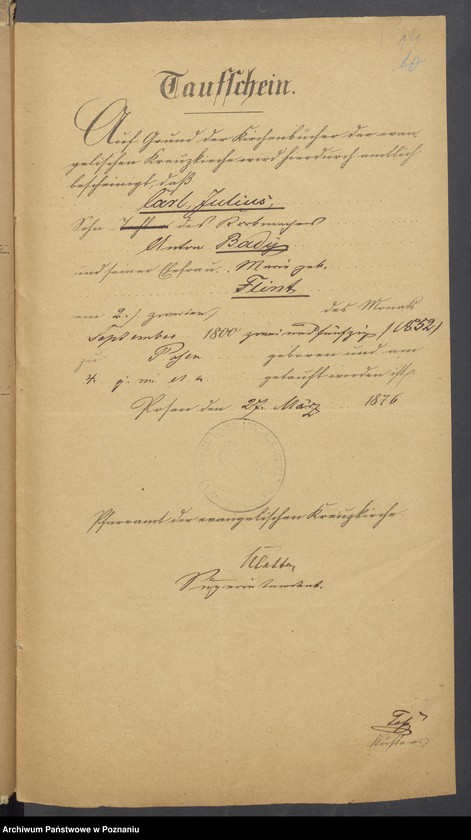 Taufschein.
Auf Grund der Kirchenbücher der evan-
gelischen Kreuzkirche wird hierdurch amtlich
bescheinigt, daß
Carl, Julius,
Sohn Tochter des Korbmachers
Anton Bady
und seiner Ehefrau, Marie geb.
Flint
am 2./ zweiten/ des Monats
September 1800 zwei und fünfzig /1852/
zu Posen geboren und am
4. getauft worden ist.
Posen den 27. März 1876
Pfarramt der evangelischen Kreuzkirche.
Klette,
Superintendent.
Küster.
Archiwum Państwowe w Poznaniu